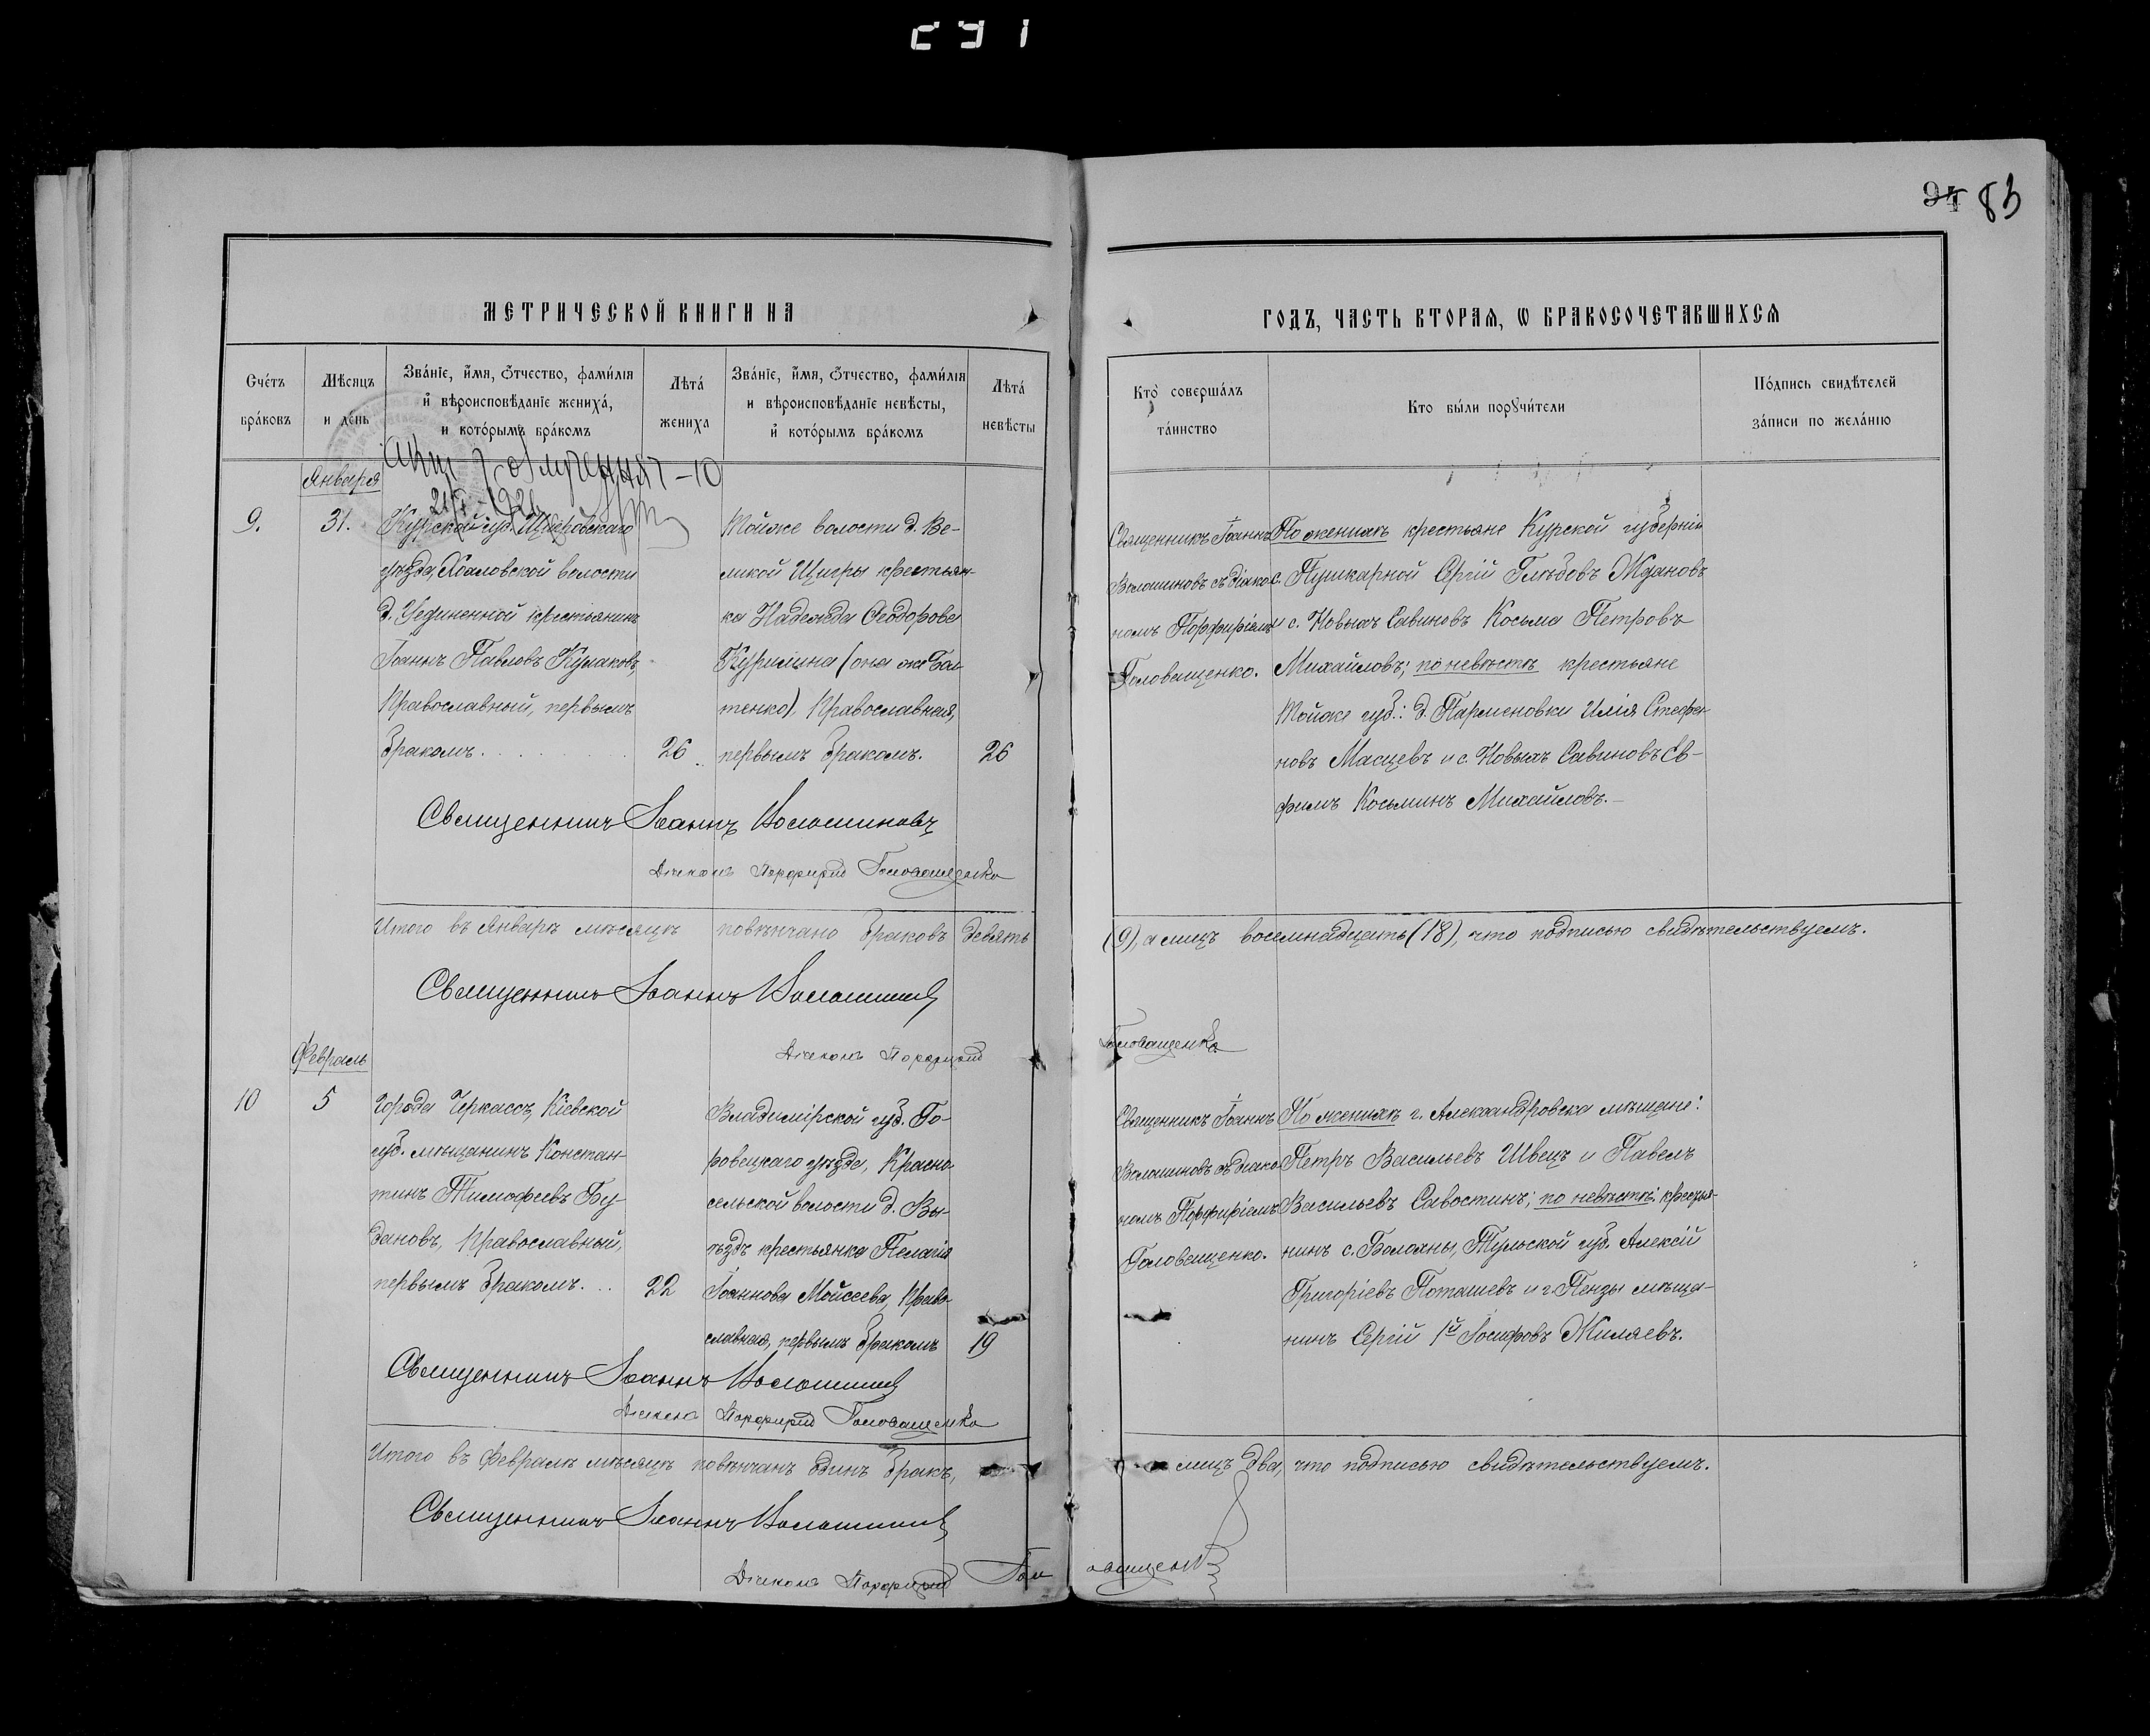 94 83
МЕТРИЧЕСКОЙ КНИГИ НА
ГОДЪ, ЧАСТЬ ВТОРАЯ, Ѡ БРАКОСОЧЕТАВШИХСЯ
Счетъ браковъ
Мѣсяцъ и день
Званіе, имя, отчество, фамилія
и вѣроисповѣданіе жениха,
и которымъ бракомъ
Лѣта жениха
Званіе, имя, отчество, фамилія
и вѣроисповѣданіе невѣсты,
и которымъ бракомъ
Лѣта невѣсты
Кто совершалъ таинство
Кто были поручители
Подпись свидѣтелей
записи по желанію
Января
9.
31.
Курской губ. Щигровскаго
уѣзда,
волости
д. Уединенной крестьянинъ
Іоаннъ Павловъ
Православный, первымъ
бракомъ.
26
Тойже волости д. Ве-
ликой Щигры крестьян-
ка Надежда Ѳеодорова
(она же
тенко), православная,
первымъ бракомъ.
26
Священникъ Іоаннъ
Волошиновъ съ діако-
номъ Порфиріемъ
Головащенко.
По женихѣ крестьяне Курской губерніи
с. Пушкарной Сергій Глѣбовъ Ждановъ
и с. Новыхъ Савиновъ Косьма Петровъ
Михайловъ; по невѣстѣ крестьяне
тойже губ.: д. Парменовки Илія Стефа-
новъ Масцевъ и с. Новыхъ Савиновъ Ев-
фимъ Косьминъ Михайловъ.
Священникъ Іоаннъ Волошиновъ
Діаконъ Порфирій Головащенко
Итого въ Январѣ мѣсяцѣ повѣнчано браковъ девять
(9), а лицъ восемнадцать (18), что подписью свидѣтельствуемъ.
Священникъ Іоаннъ Волошиновъ
Діаконъ Порфирій Головащенко
Февраль
10
5
Города Черкассъ, Кіевской
губ. мѣщанинъ Констан-
тинъ Тимофеевъ Бу-
дановъ, православный,
первымъ бракомъ.
22
Владимірской губ. Го-
ровецкаго уѣзда, Красно-
сельской волости д. Вы-
ѣздъ крестьянка Пелагія
Іоаннова Мойсеева, право-
славная, первымъ бракомъ
19
Священникъ Іоаннъ
Волошиновъ съ діако-
номъ Порфиріемъ
Головащенко.
По женихѣ г. Александровска мѣщане:
Петръ Васильевъ Швецъ и Павелъ
Васильевъ Савостинъ; по невѣстѣ: крестья-
нинъ с. Болохны, Тульской губ. Алексій
Григоріевъ Поташевъ и г. Пензы мѣща-
нинъ Сергій 1й Іосифовъ Жиляевъ.
Священникъ Іоаннъ Волошиновъ
Діаконъ Порфирій Головащенко
Итого въ Февралѣ мѣсяцѣ повѣнчанъ одинъ бракъ,
лицъ два, что подписью свидѣтельствуемъ.
Священникъ Іоаннъ Волошиновъ
Діаконъ Порфирій Головащенко